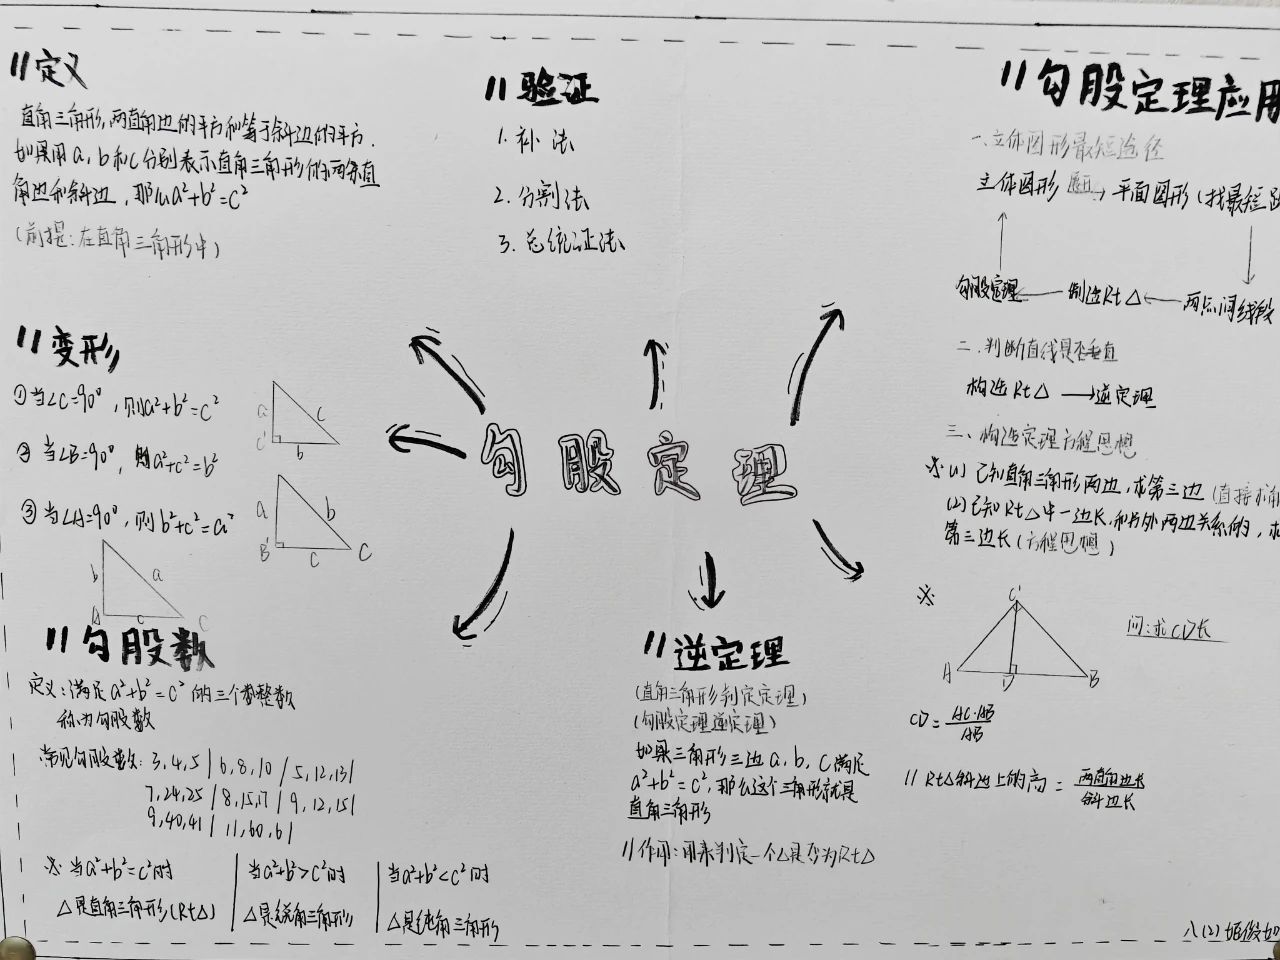 〃定义
直角三角形,两直角边的平方和等于斜边的平方.
如果用a,b和c分别表示直角三角形的两条直
角边和斜边,那么a²+b²=c²
(前提:在直角三角形中)
〃验证
1.补法
2.分割法
3.总统证法
〃勾股定理应用
一.立体图形最短途径
立体图形 展开→ 平面图形(找最短
勾股定理 ← 制造Rt△ ← 两点间线段
二.判断直线是否垂直
构造Rt△ →逆定理
三、构造定理方程思想
※(1)已知直角三角形两边,求第三边(直接求解
(2)已知Rt△中一边长,和另外两边关系的,求
第三边长(方程思想)
※
C
A D B
问:求CD长
CD=AC·AB/AB
〃Rt△斜边上的高=两直角边长/斜边长
〃变形
①当∠C=90°,则a²+b²=c²
②当∠B=90°,则a²+c²=b²
③当∠A=90°,则b²+c²=a²
a c
C b
a b
B c C
b a
A c C
勾股定理
〃勾股数
定义:满足a²+b²=c²的三个正整数
称为勾股数
常见勾股数:3,4,5|6,8,10|5,12,13|
7,24,25|8,15,17|9,12,15|
9,40,41|11,60,61
※当a²+b²=c²时
△是直角三角形(Rt△)
当a²+b²>c²时
△是锐角三角形
当a²+b²<c²时
△是钝角三角形
〃逆定理
(直角三角形判定定理)
(勾股定理逆定理)
如果三角形三边a,b,c满足
a²+b²=c²,那么这个三角形就是
直角三角形
〃作用:用来判定一个△是否为Rt△
八(2)